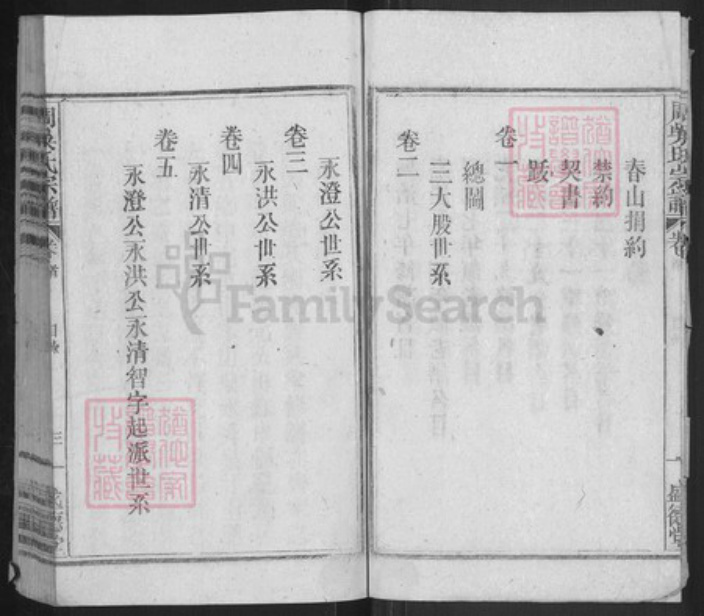 春山捐約
禁約
契書
跋
卷一
總圖
三大股世系
卷二
永澄公世系
卷三
永洪公世系
卷四
永清公世系
卷五
永澄公永洪公永清智字起派世系
盛德堂
三
FamilySearch